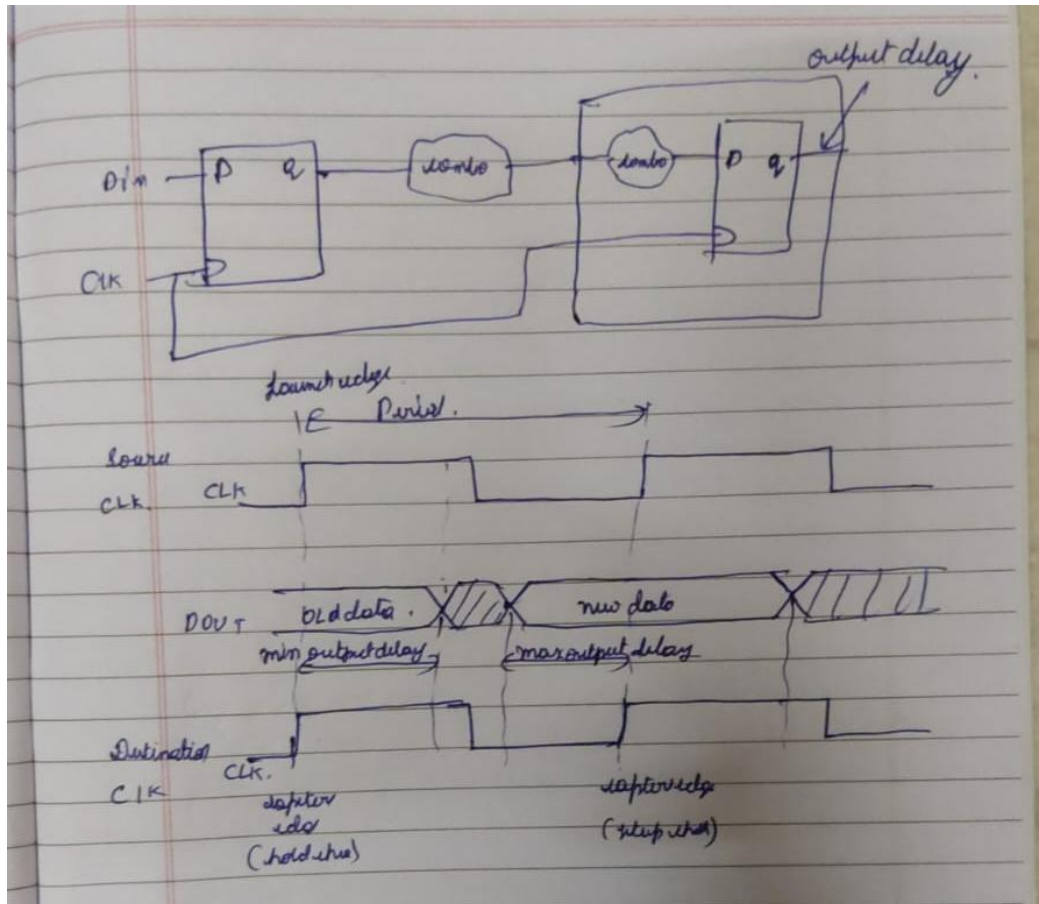 output delay.
Din D Q combo combo D Q
CLK
Launch edge
Period.
Source
CLK. CLK
DOUT OLd data. new data
min output delay max output delay
Destination
CLK CLK.
(hold
(setup